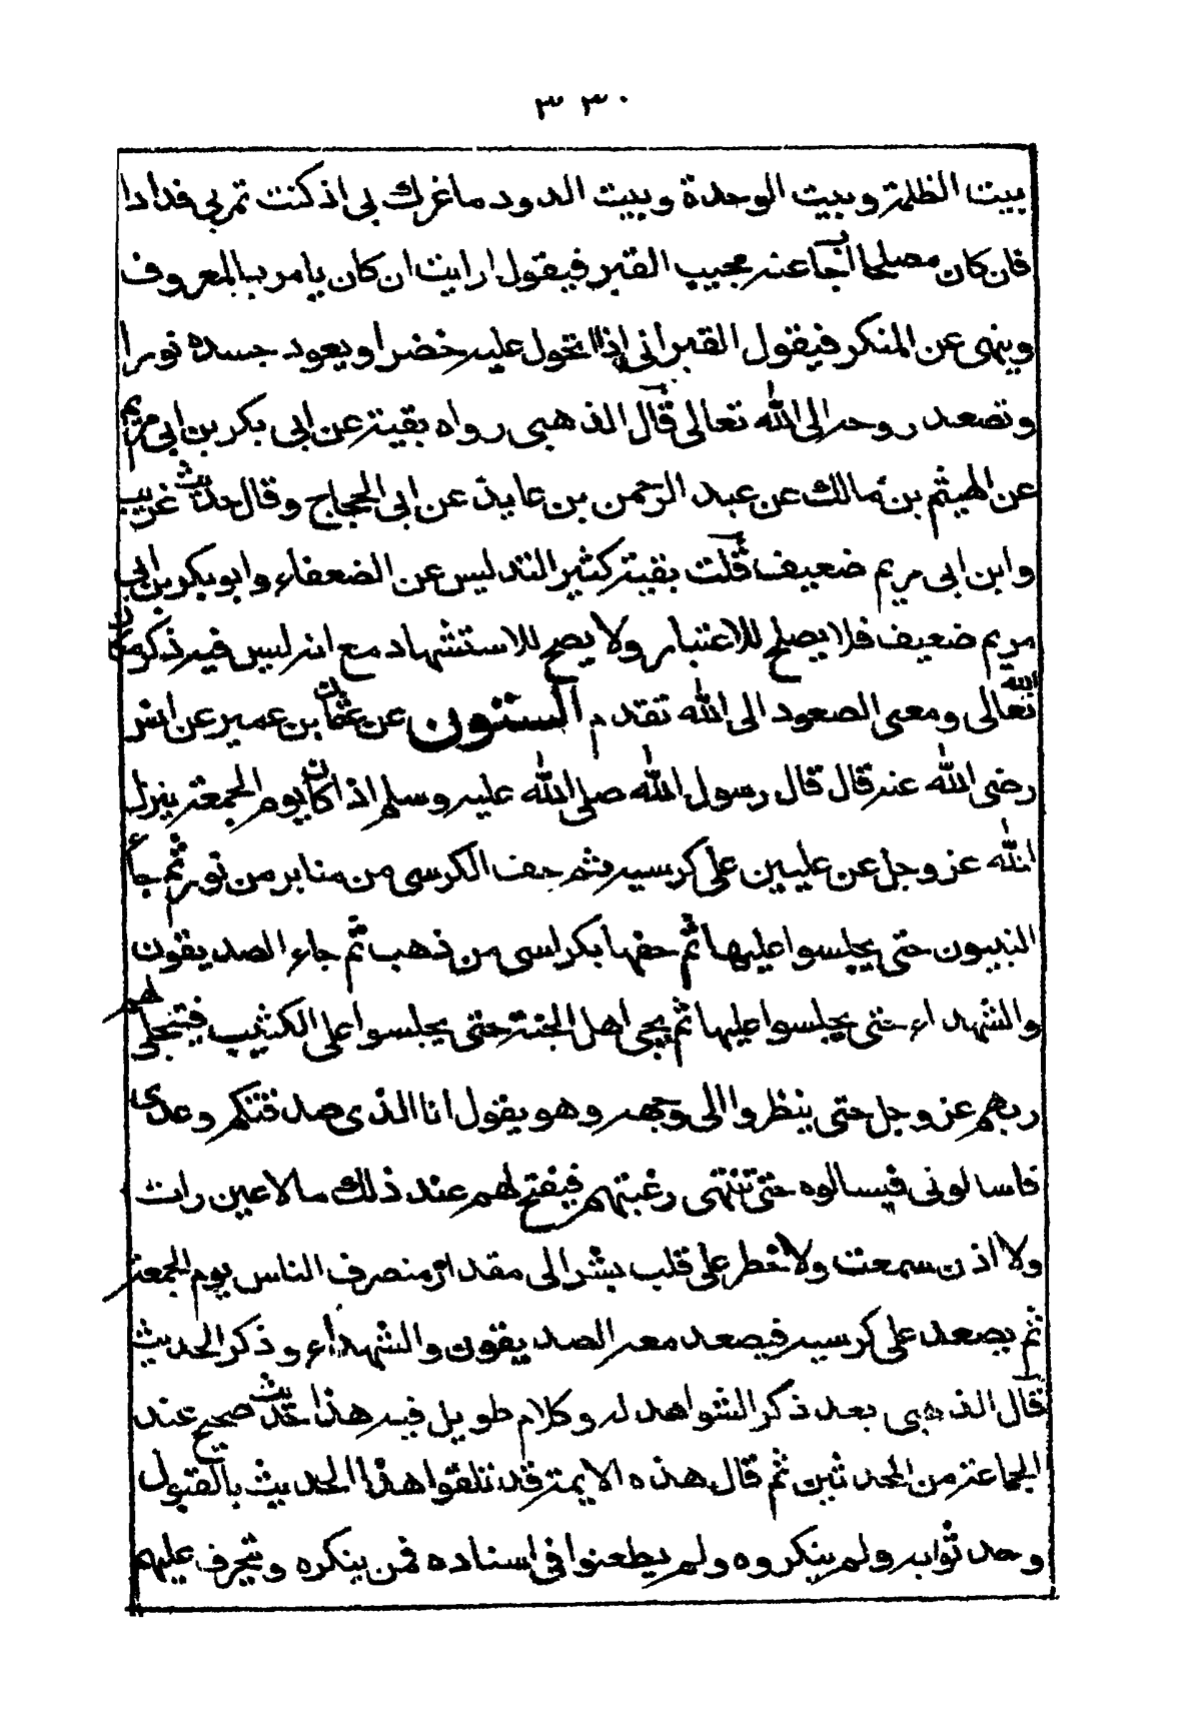 ٣٣٠
بيت الظلمة وبيت الوحدة وبيت الدود ما غرك بي اذ كنت تمر بي فدادا
فان كان مصلحا اجاب عنه مجيب القبر فيقول ارايت ان كان يامر بالمعروف
وينهى عن المنكر فيقول القبر اني اذا اتحول عليه خضرا ويعود جسده نورا
وتصعد روحه الى الله تعالى قال الذهبى رواه بقية عن ابى بكر بن ابى مريم
عن الهيثم بن مالك عن عبد الرحمن بن عايذ عن ابى الحجاج وقال حديث غريب
وابن ابى مريم ضعيف قلت بقية كثير التدليس عن الضعفاء وابو بكر بن ابى
مريم ضعيف فلا يصلح للاعتبار ولا يصح للاستشهاد مع انه ليس فيه ذكر مكان
الله تعالى ومعنى الصعود الى الله تقدم الستون عن عثمان بن عمير عن انس
رضى الله عنه قال قال رسول الله صلى الله عليه وسلم اذا كان يوم الجمعة ينزل
الله عز وجل عن عليين على كرسيه فثم حف الكرسى من منابر من نور ثم جاء
النبيون حتى يجلسوا عليها ثم حفها بكراسى من ذهب ثم جاء الصديقون
والشهداء حتى يجلسوا عليها ثم يجى اهل الجنة حتى يجلسوا على الكثيب فيتجلى لهم
ربهم عز وجل حتى ينظروا الى وجهه وهو يقول انا الذى صدقتكم وعدى
فاسالونى فيسالوه حتى تنتهى رغبتهم فيفتح لهم عند ذلك ما لا عين رات
ولا اذن سمعت ولا خطر على قلب بشر الى مقدار منصرف الناس يوم الجمعة
ثم يصعد على كرسيه فيصعد معه الصديقون والشهداء وذكر الحديث
قال الذهبى بعد ذكر الشواهد له وكلام طويل فيه هذا حديث صحيح عند
الجماعة من المحدثين ثم قال هذه الايمة قد تلقوا هذا الحديث بالقبول
وحد ثوابه ولم ينكروه ولم يطعنوا فى اسناده فمن ينكره ويتجرف عليهم